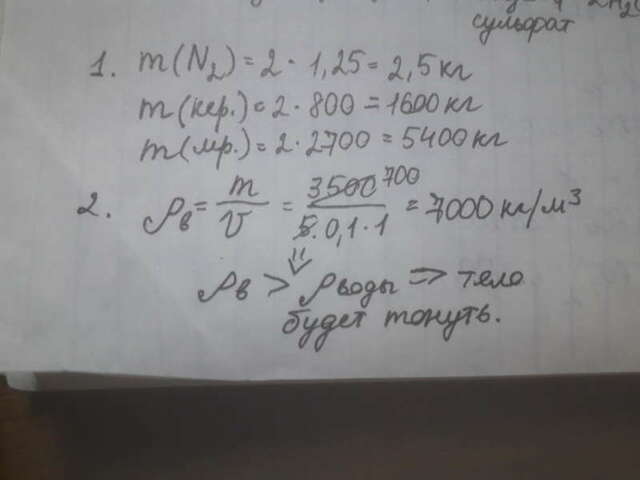 сульфат
1. m(N₂) = 2 · 1,25 = 2,5 кг
m(кер.) = 2 · 800 = 1600 кг
m(мр.) = 2 · 2700 = 5400 кг
2. ρв = m/V = 3500 700 / 5 · 0,1 · 1 = 7000 кг/м³
⇓
ρв > ρводы ⇒ тело
будет тонуть.